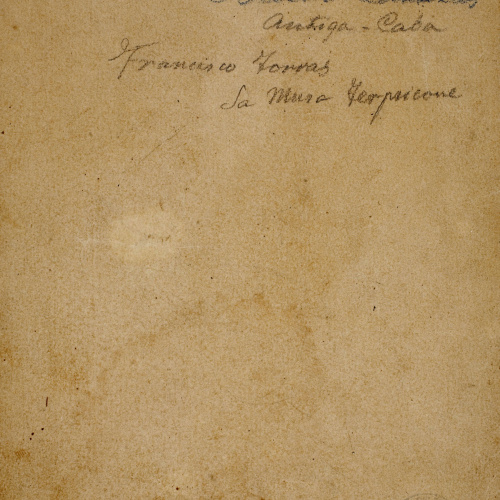 Antiga - Caba
Francisco Torras
La Musa Terpsicone